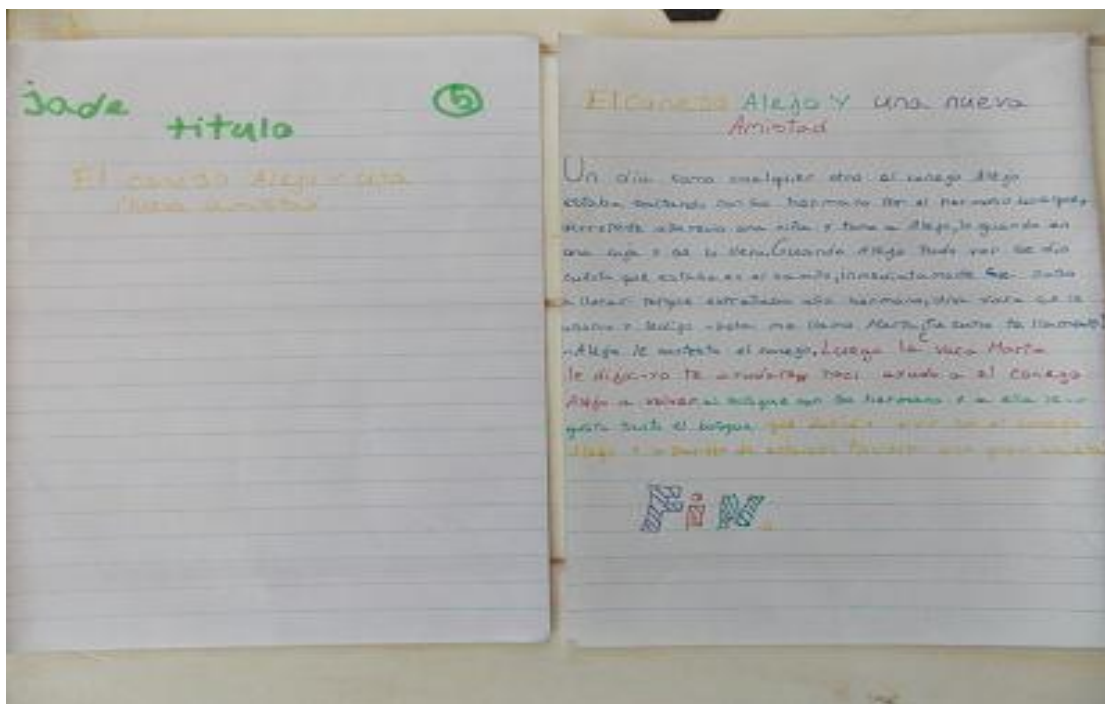 jade
5
titulo
El conejo Alejo y una
nueva amistad
El conejo Alejo Y una nueva
Amistad
Un dia como cualquier otro el conejo Alejo
estaba saltando con su hermana por el hermoso bosque,
derrepente aparecio una niña y toma a Alejo, lo guarda en
una caja y se lo lleva. Cuando Alejo pudo ver se dio
cuenta que estaba en el campo, inmediatamente se puso
a llorar porque extrañaba a su hermana, una vaca se le
y le dijo -hola me llamo Marta, ¿tu como te llamas?
-Alejo le contesto el conejo, Luego la vaca Marta
le dijo:-yo te ayudare y haci ayudo a el conejo
Alejo a volver al bosque con su hermana y a ella le
gusto tanto el bosque que decidio vivir con el conejo
Alejo y
FiN.